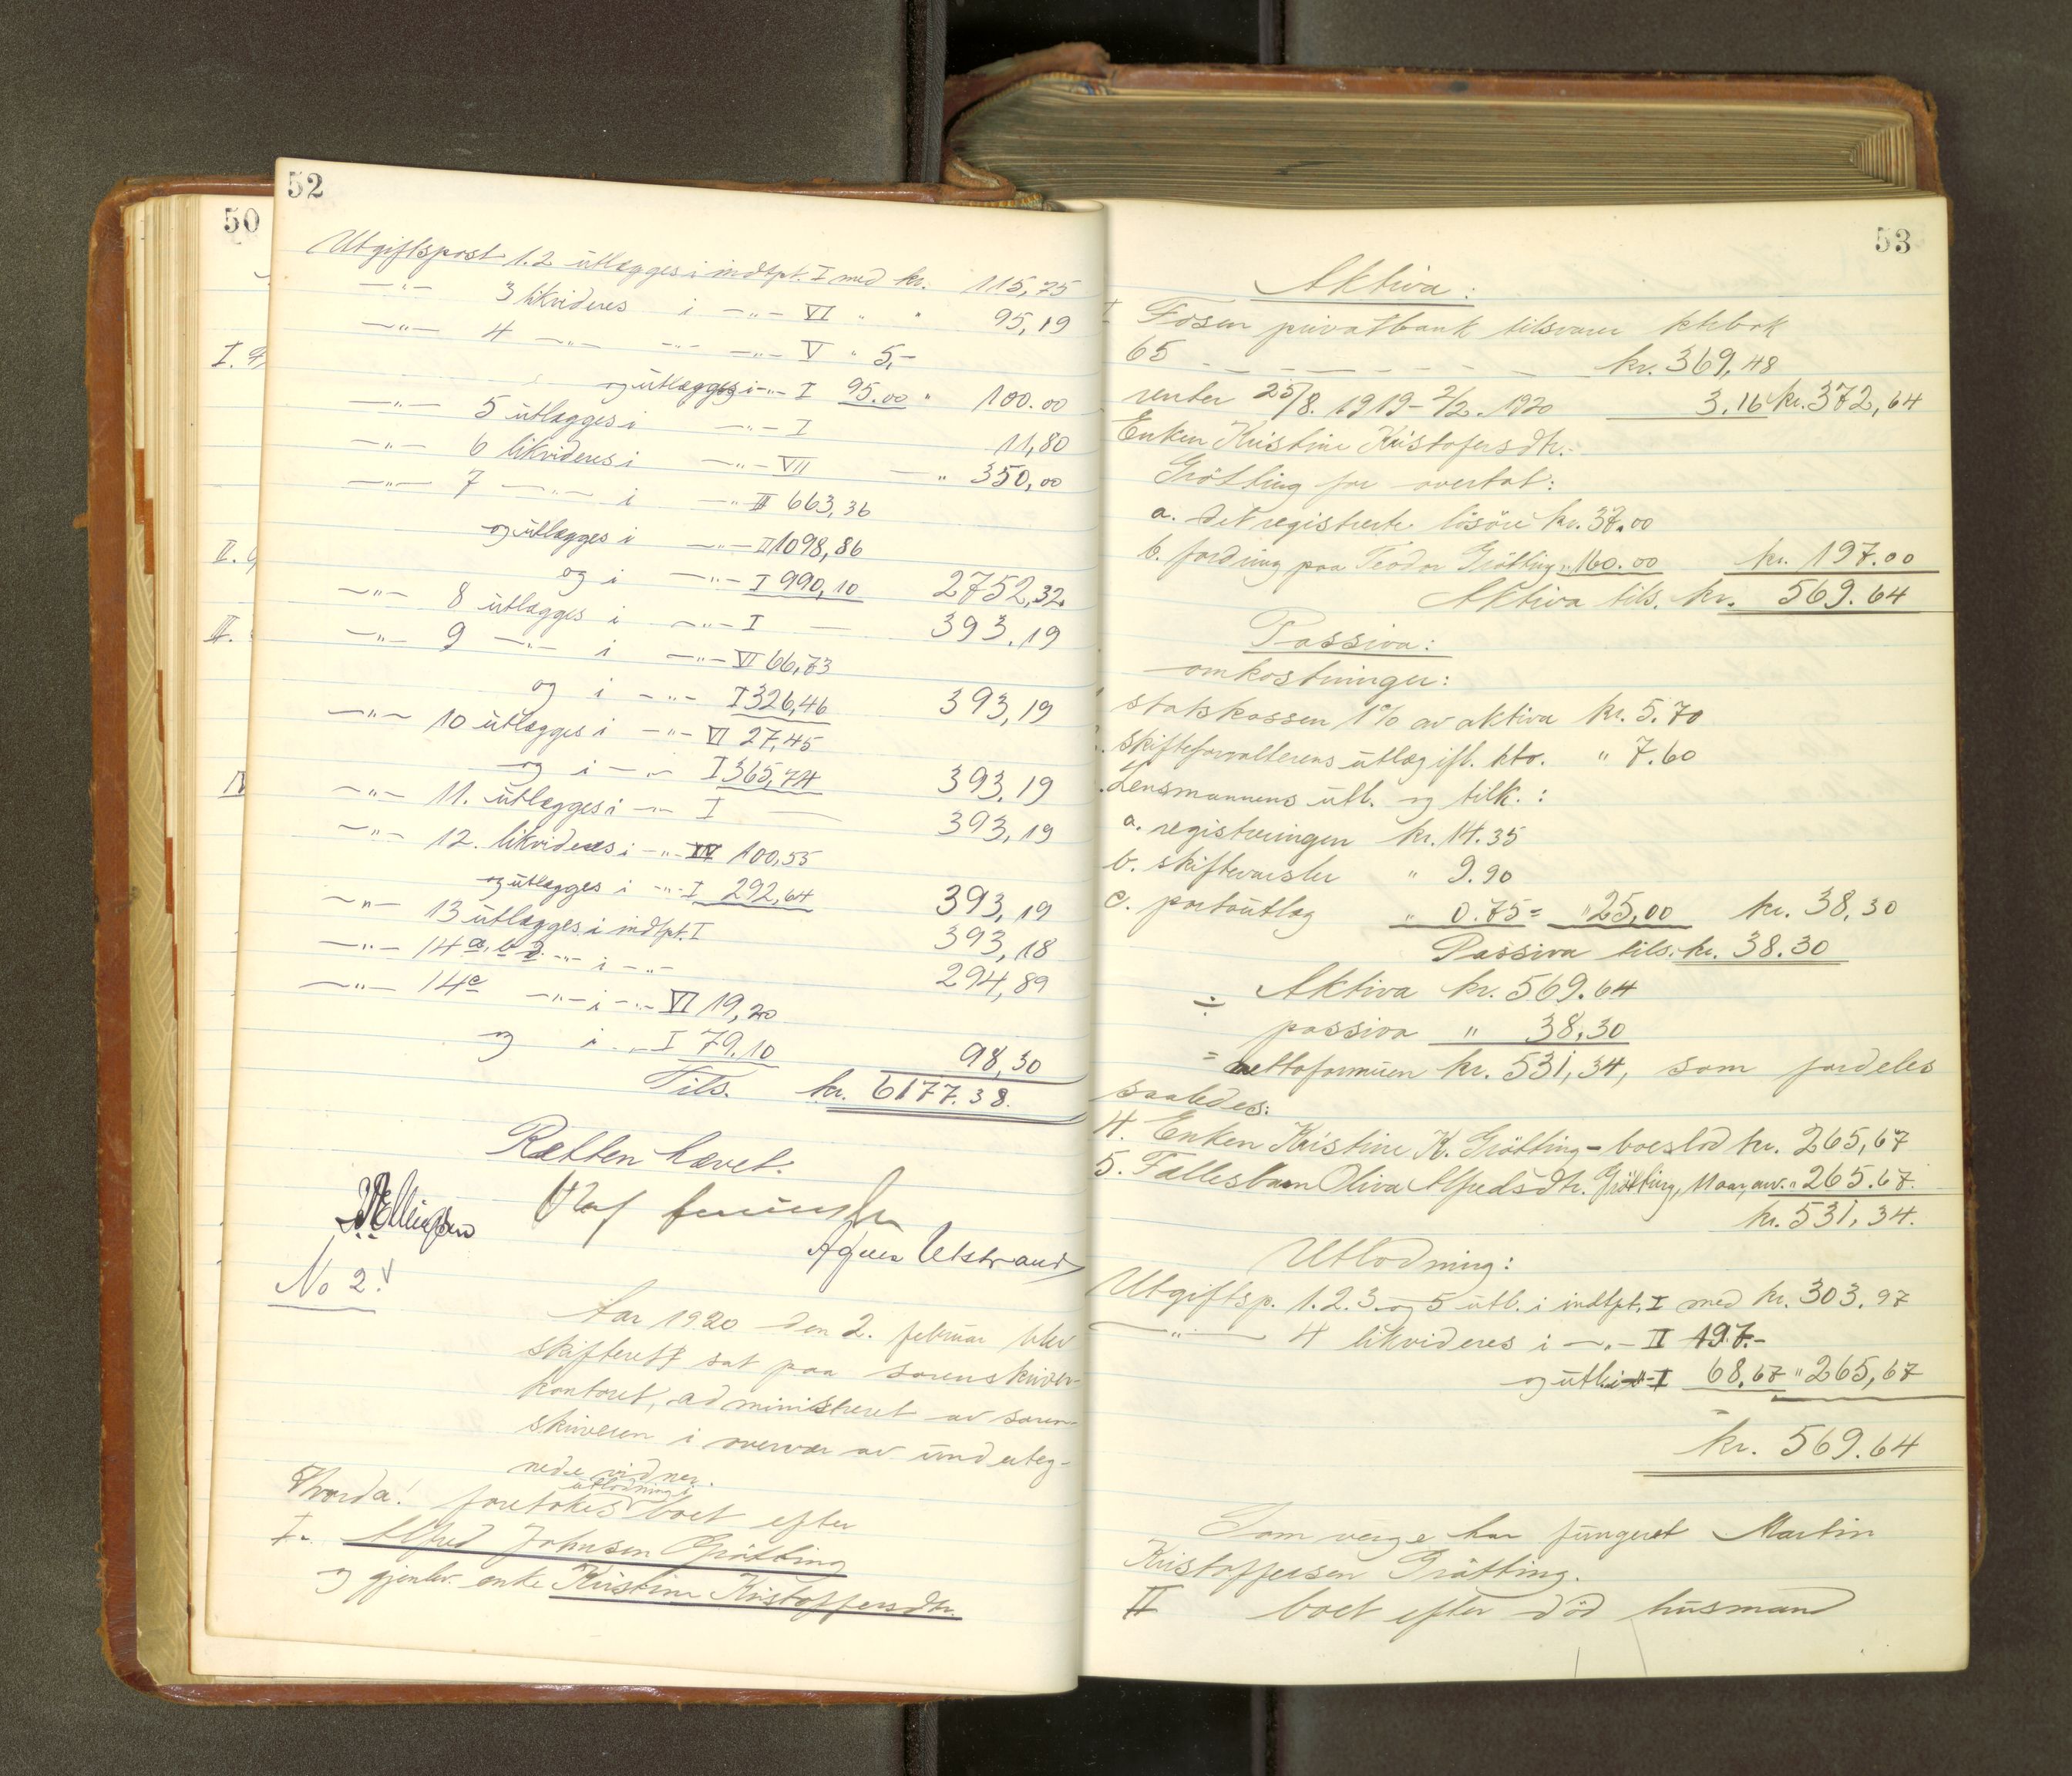 52
Utgiftspost 1.2 utlægges i indtpt. I med kr. 115,75
—"— 3 likvideres i —"— VI " " 95,19
—"— 4 —"— —"— —"— V " 5,-
og utlægges i —"— I 95.00 " 100.00
—"— 5 utlægges i —"— I 11,80
—"— 6 likvideres i —"— VII — " 350,00
—"— 7 —"— i —"— III 663,36
og utlægges i —"— II 1098,86
og i —"— I 990,10 2752,32
—"— 8 utlægges i —"— I — 393.19
—"— 9 —"— i —"— VI 66,73
og i —"— I 326,46 393,19
—"— 10 utlægges i —"— VI 27,45
og i —"— I 365,74 393.19
—"— 11. utlægges i —"— I — 393,19
—"— 12. likvideres i —"— IV 100,55
og utlægges i —"— I 292,64 393,19
—"— 13 utlægges i indtpt. I 393,18
—"— 14 a, b —"— i —"— 294,89
—"— 14c —"— i —"— VI 19,20
og i —"— I 79.10 98,30
Tils. kr. 6177.38.
Retten hævet.
Agnes Utstrand
No 2.
Aar 1920 den 2. februar blev
skifteret sat paa sorenskriver-
kontoret, administreret av soren-
skriveren i overvær av underteg-
nede vidner.
Hvorda! foretokes utlodning i boet efter
I. Alfred Johnsen Grötting
og gjenlev. enke Kristine Kristoffersdtr.
50
I.
II.
III.
IV
53
Aktiva:
I Fosen privatbank tilsvarer ktrbok
65 — — — — — — — kr. 369,48
renter 25/8. 1919 - 2/2. 1920 3.16 kr. 372,64
Enken Kristine Kristofersdtr.
Grötting har overtat:
a. det registrerte lösöre kr. 37.00
b. fordring paa Teodor Grötting " 160.00 kr. 197.00
Aktiva tils. kr. 569.64
Passiva:
omkostninger:
statskassen 1% av aktiva kr. 5.70
skifteforvalterens utlæg ifl. kto. " 7.60
Lensmannens utl. og tilk.:
a. registreringen kr. 14.35
b. skiftevarsler " 9.90
c. portoutlæg " 0.75 = " 25,00 kr. 38,30
Passiva tils. kr. 38.30
Aktiva kr. 569.64
÷ passiva " 38,30
= nettoformuen kr. 531,34, som fordeles
saaledes:
4. Enken Kristine K. Grötting - boeslod kr. 265,67
5. Fællesbarn Oliva Alfredsdtr. Grötting, 11 aar, arv. " 265.67.
kr. 531,34.
Utlodning:
Utgiftsp. 1.2.3. og 5 utl. i indtpt. I med kr. 303.97
—"— 4 likvideres i —"— II 197.-
og utl. i —"— I 68,67 " 265,67
kr. 569.64
Som verge har fungeret Martin
Kristoffersen Grötting.
II boet efter död husmand